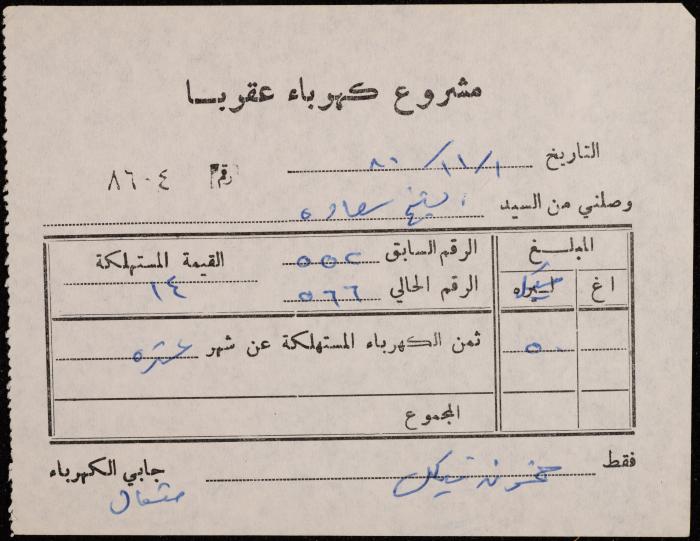 مشروع كهرباء عقربا
التاريخ ١/١١/٨٠
رقم ٨٦٠٤
وصلني من السيد الشيخ سعاده
المبلغ
اغ
ليره شيكل
الرقم السابق ٥٥٢
الرقم الحالي ٥٦٦
القيمة المستهلكة
١٤
ثمن الكهرباء المستهلكة عن شهر عشره
٥٠
المجموع
فقط خمسون شيكل
جابي الكهرباء
مشعال